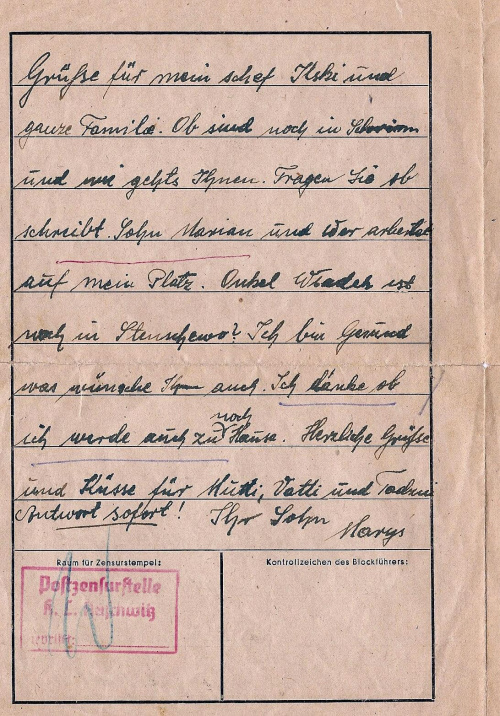 Grüsse für mein schef Ilski und
ganze Familie. Ob sind noch in Schrimm
und wie gehts Ihnen. Fragen Sie ob
schreibt Sohn Marian und wer arbeitet
auf mein Platz. Onkel Wladek ist
noch in Stenschewo? Ich bin Gesund
was wünsche Ihnen auch. Ich danke ob
ich werde auch zu noch Hause. Herzliche Grüsse
und Küsse für Mutti, Vatti und
Antwort sofort! Ihr Sohn
Marys
Raum für Zensurstempel:
Kontrollzeichen des Blockführers:
Postzensurstelle
K. L. Auschwitz